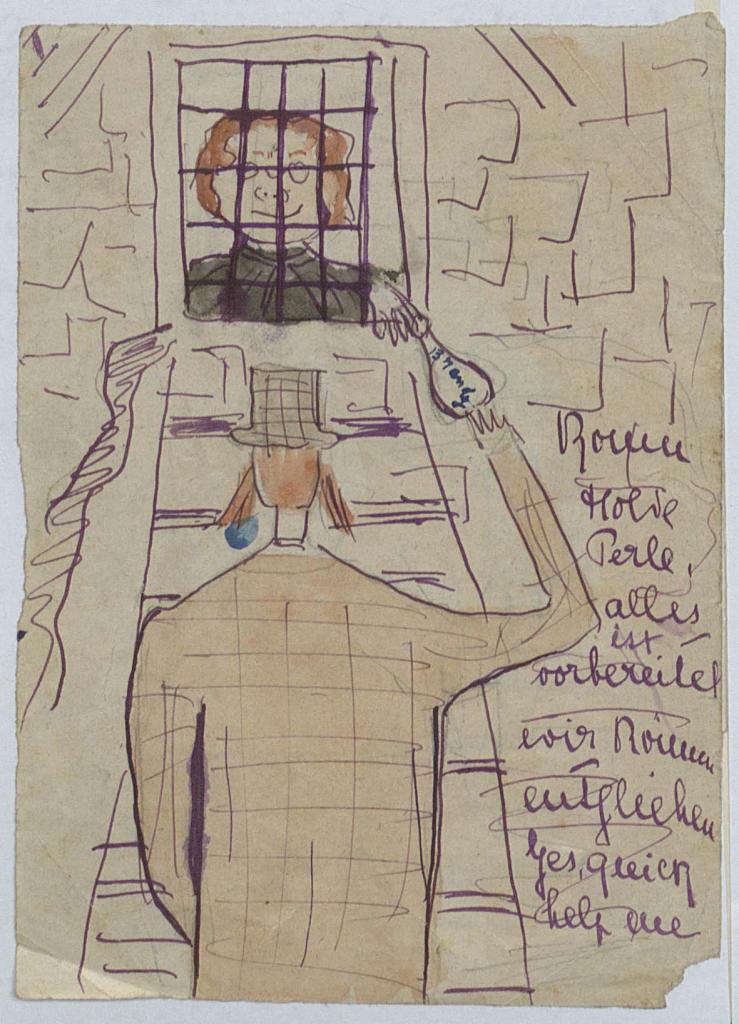 Brandy
Holde
Perle,
alles
ist
vorbereitet
wir
entfliehen
Yes, quick
help me